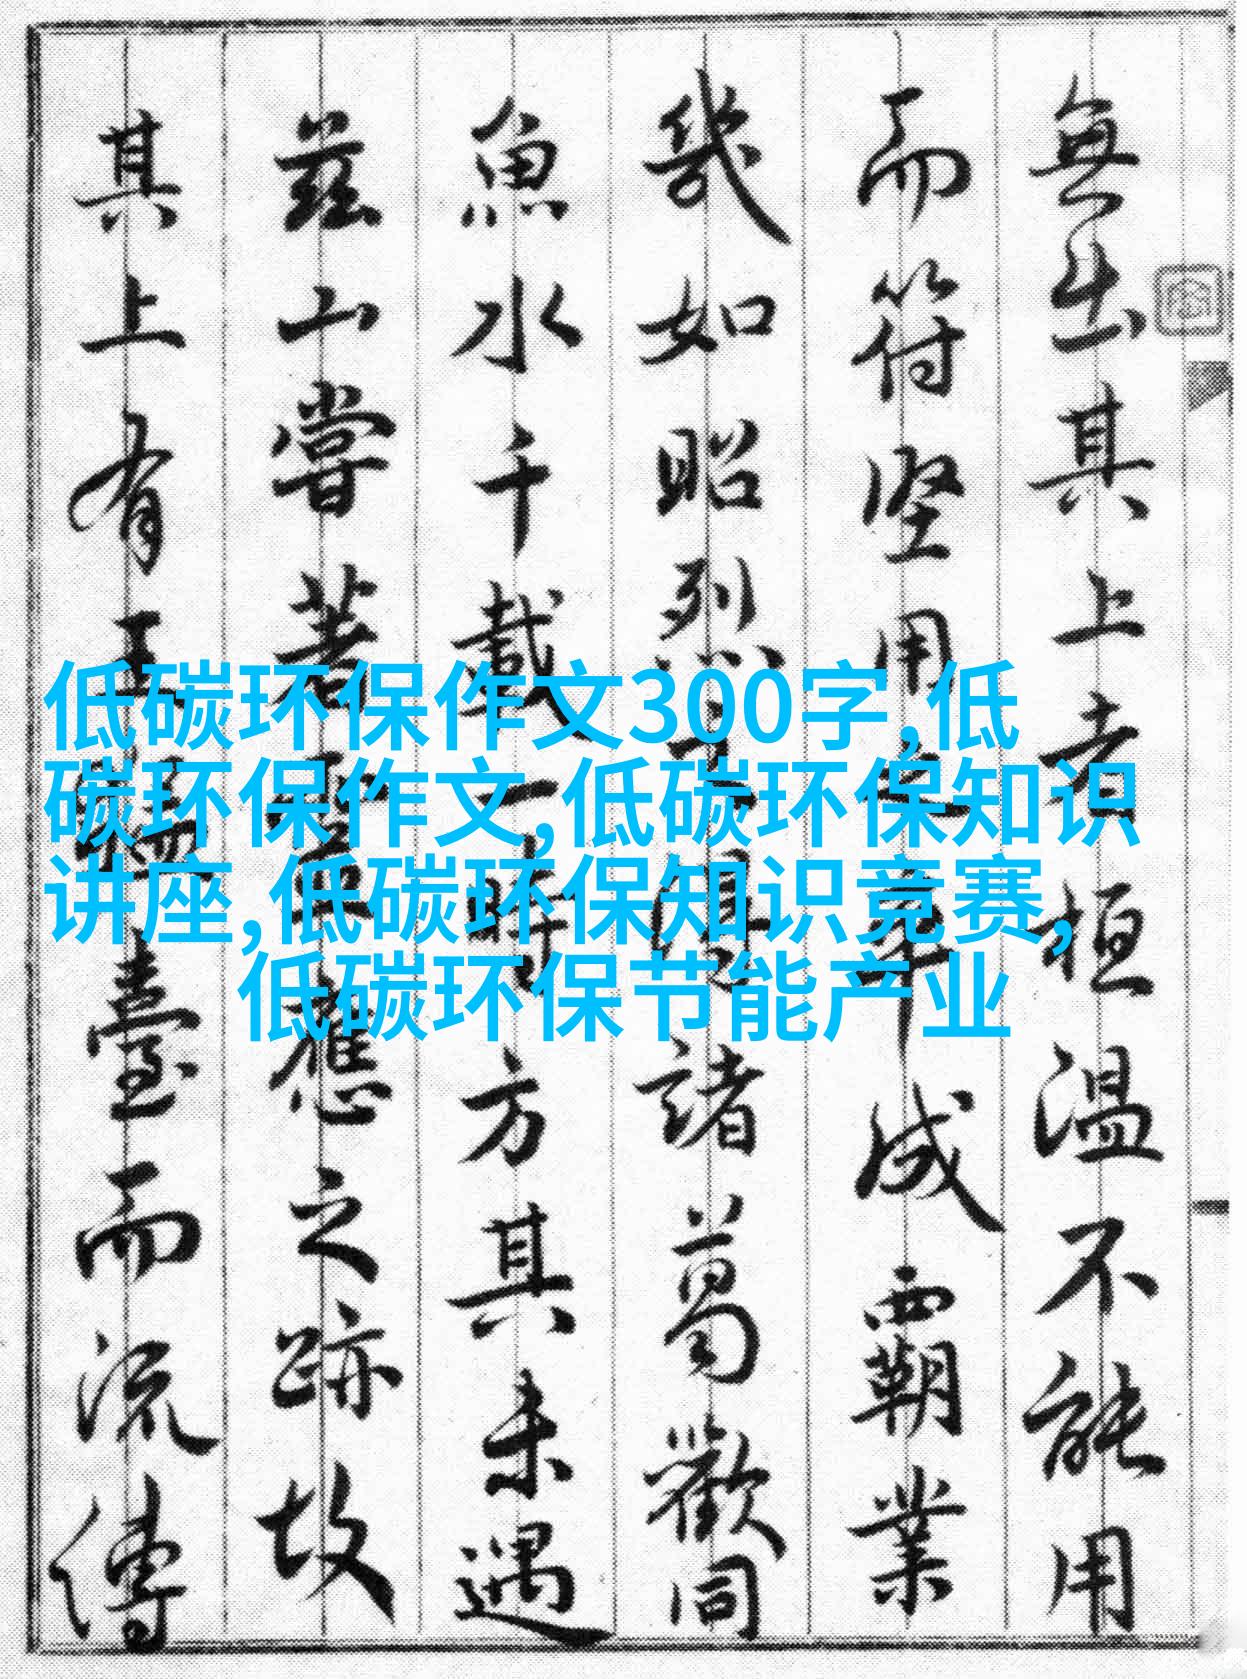 無出其上者桓温不能用
而符堅用之卒成覇業
幾如昭烈之諸葛歡同
魚水千載一時方其未遇
兹山嘗著應之跡故
其上有王猛臺而流傳
低碳环保作文300字,低
碳环保作文,低碳环保知识
讲座,低碳环保知识竞赛,
低碳环保节能产业